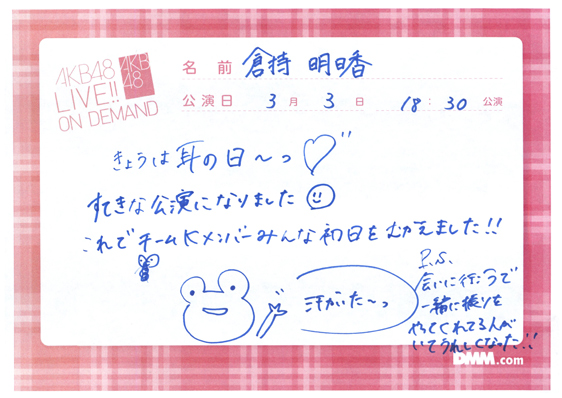 AKB48
LIVE!!
ON DEMAND
AKB
48
名 前 倉持 明日香
公演日 3 月 3 日 18 : 30 公演
きょうは 耳の日〜っ♡"
すてきな公演になりました
これでチームKメンバーみんな初日をむかえました!!
汗かいた〜っ
P.S.
会いに行こうで
一緒に振りを
やってくれてる人が
いてうれしくなった!!
DMM.com